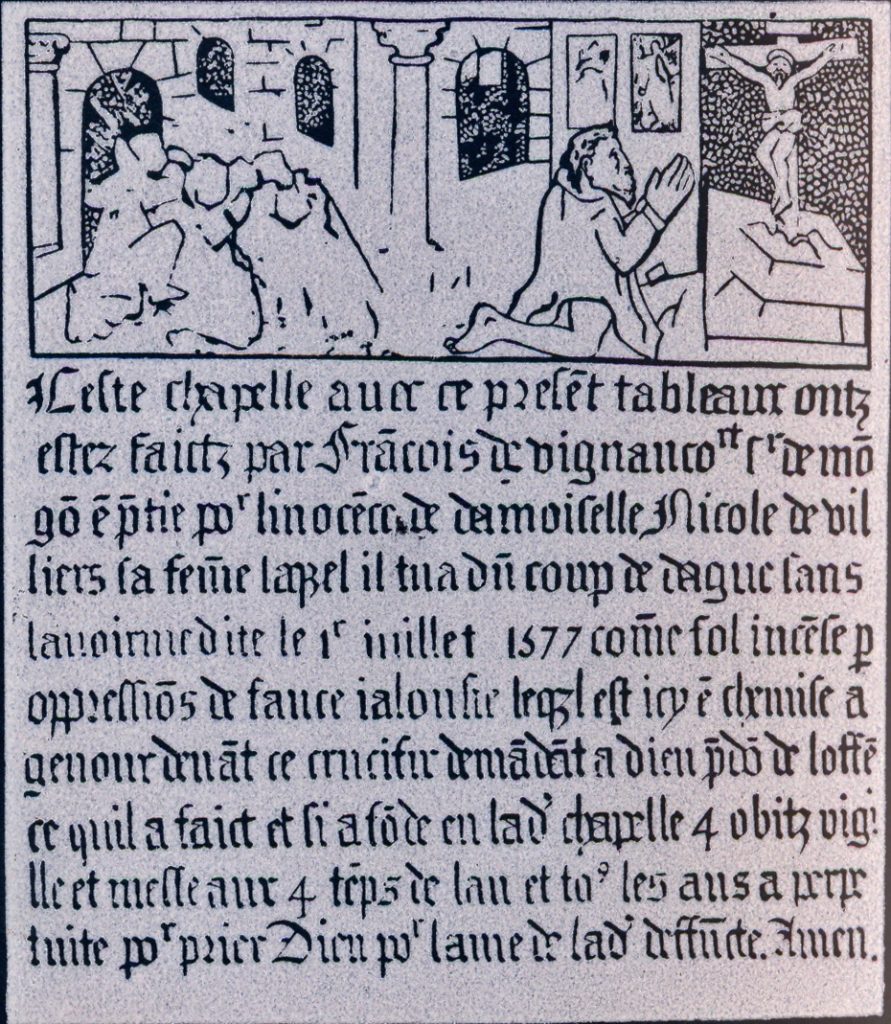 Ceste chapelle avec ce presēt tableaux ontz
estez faictz par Frācois de vignaucoʳᵗ sʳ de mō
gō ē p̄tie poʳ linocēce de damoiselle Nicole de vil
liers sa fem̄e laq̄l el il tua dun̄ coup de dague sans
lavoir medite le 1ʳ iuillet 1577 com̄e fol incēse ꝑ
oppressiōs de fauce ialousie leq̄l est icy ē chemise a
genoux devāt ce crucifix demādāt a dieu p̄dō de loffē
ce quil a faict et si a fōde en lad' chapelle 4 obitz vigi
lle et messe aux 4 tēps de lan et toꝰ les ans a perpe
tuite poʳ prier Dieu poʳ lame de lad' deffūcte. Amen.